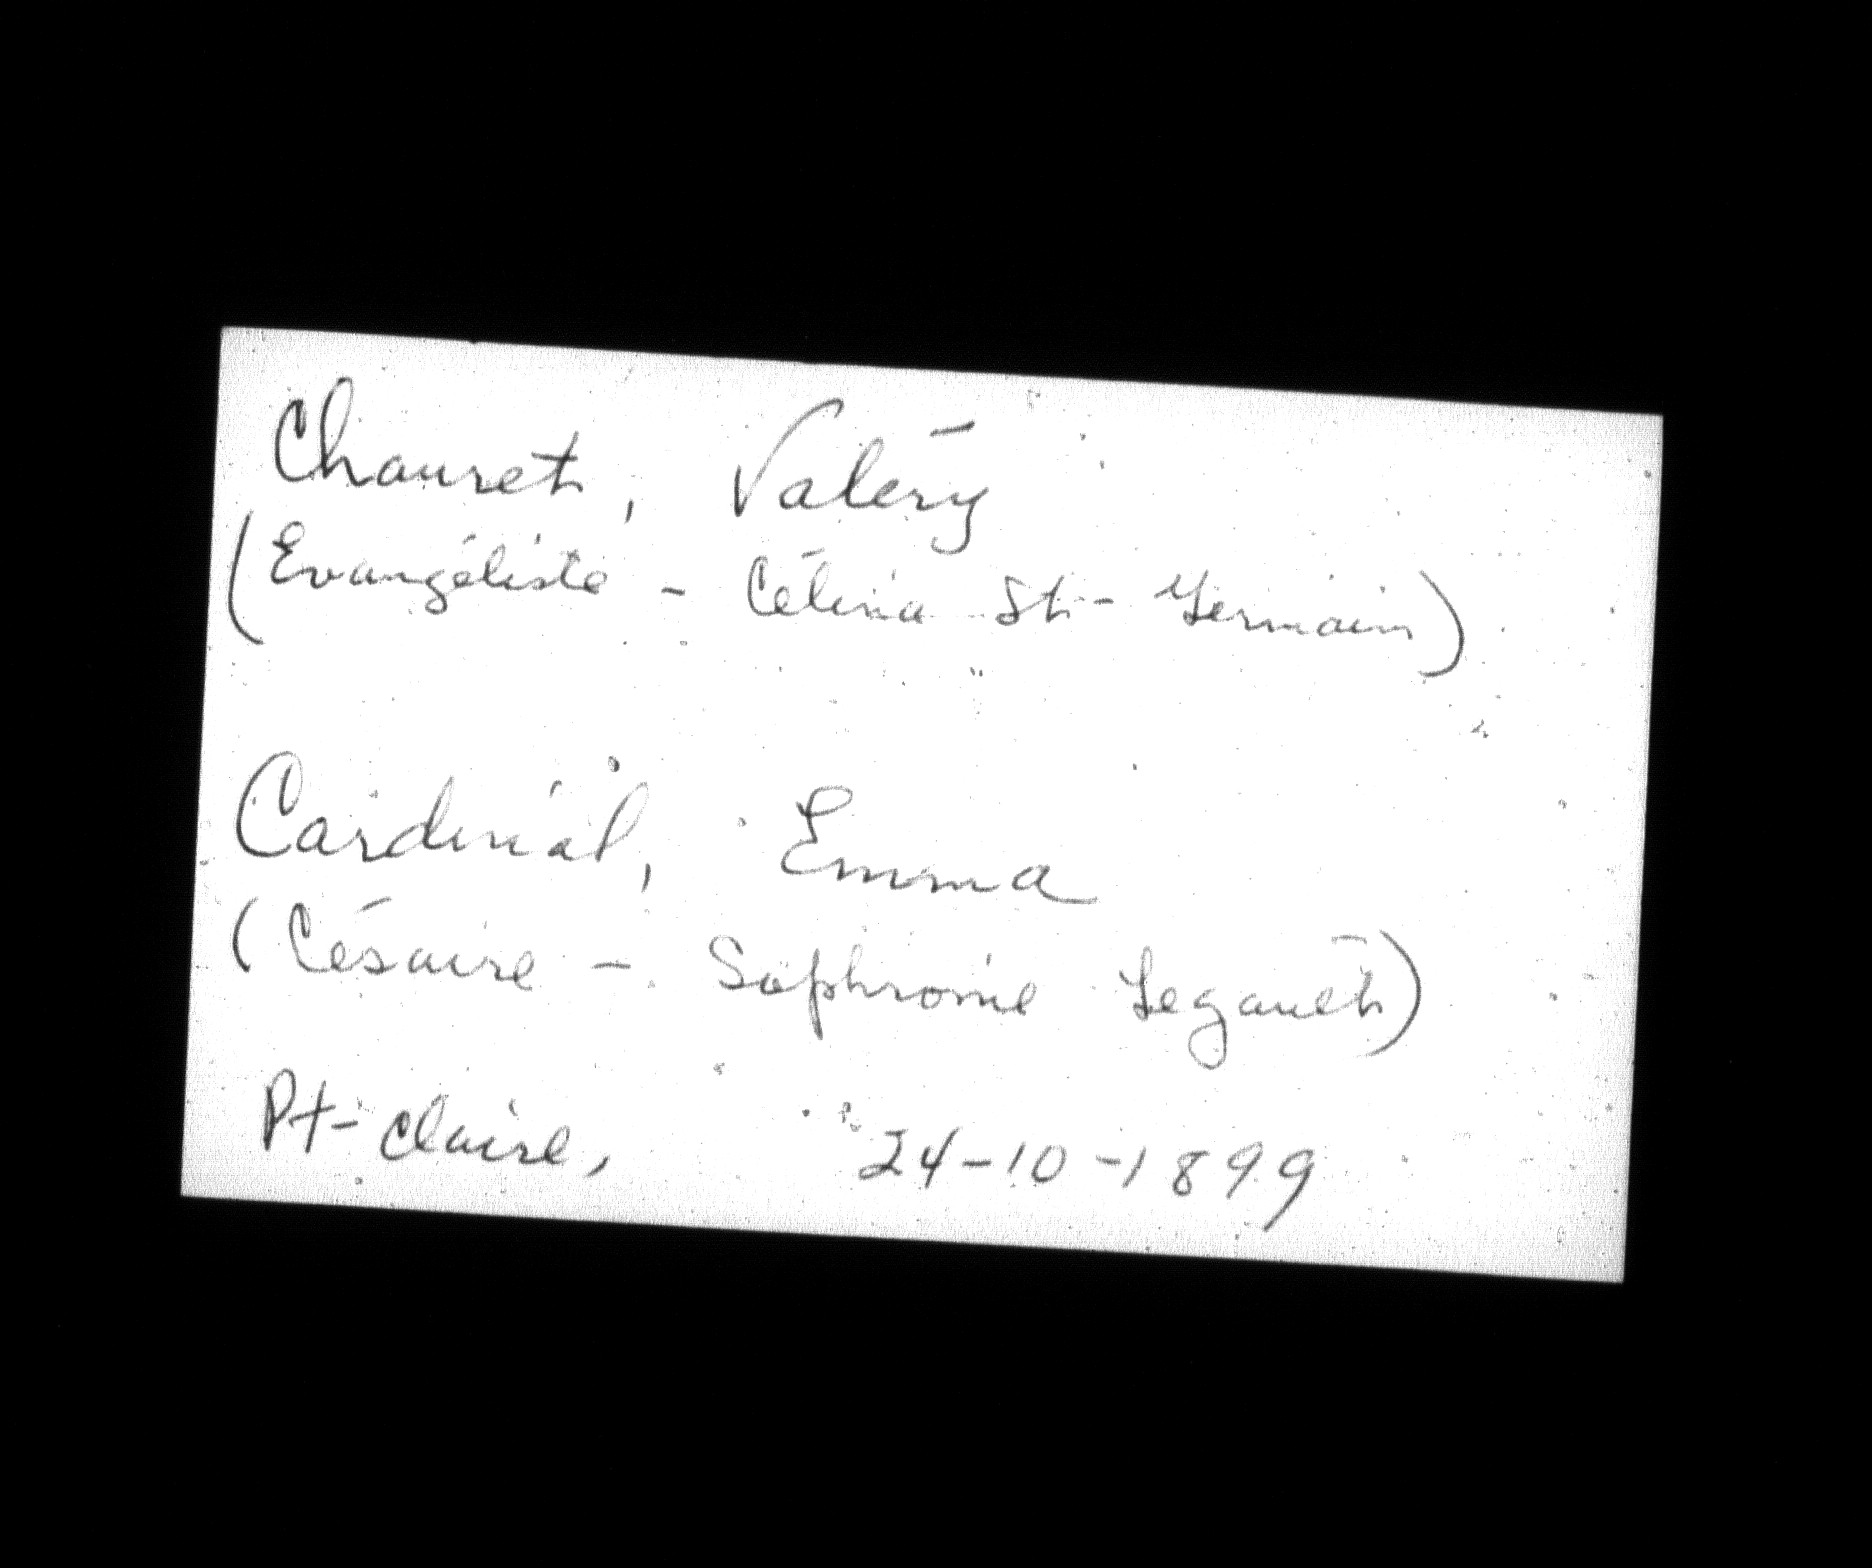 Chauret, Valéry
(Evangéliste - Célina St-Germain)
Cardinal, Emma
(Césaire - Sophronie Legault)
Pt-Claire, 24-10-1899